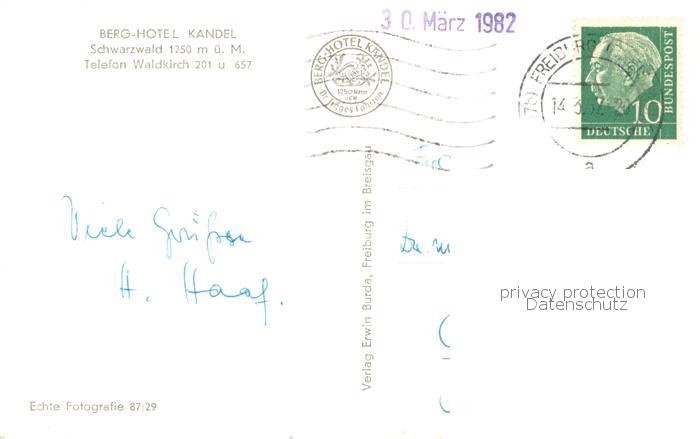 BERG-HOTEL KANDEL
Schwarzwald 1250 m ü. M.
Telefon Waldkirch 201 u. 657
30. März 1982
BERG-HOTEL KANDEL
1250 Meter
FREIBURG
10
DEUTSCHE
BUNDESPOST
Viele Grüße
H. Haaf.
Verlag Erwin Burda, Freiburg im Breisgau
privacy protection
Datenschutz
Echte Fotografie 87/29